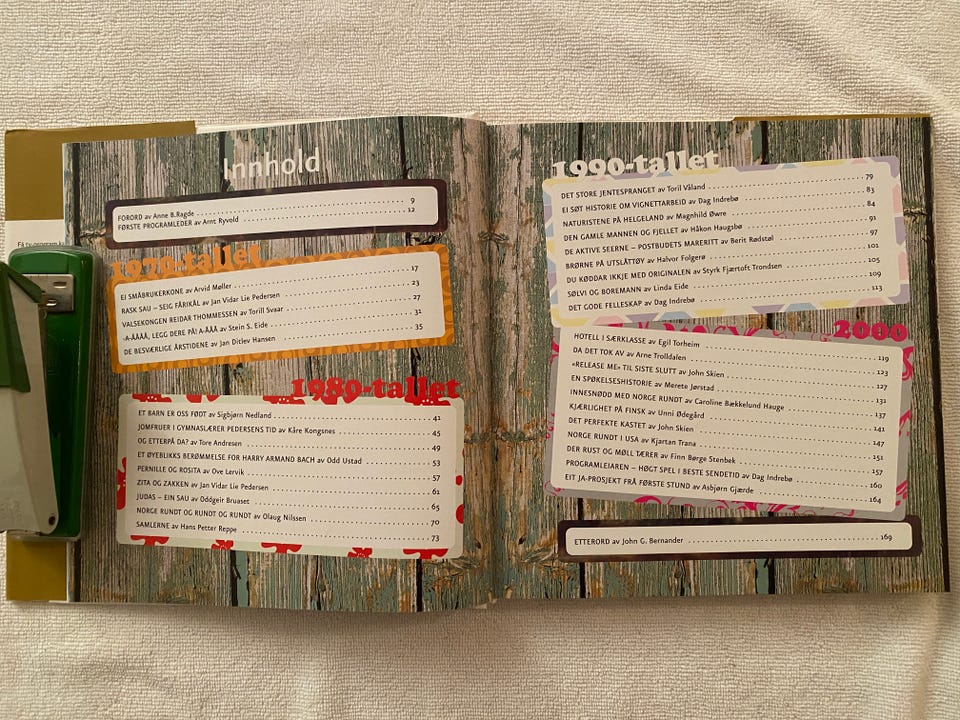 Innhold
FORORD av Anne B.Ragde 9
FØRSTE PROGRAMLEDER av Arnt Ryvold 12
1970-tallet
EI SMÅBRUKERKONE av Arvid Møller 17
RASK SAU – SEIG FÅRIKÅL av Jan Vidar Lie Pedersen 23
VALSEKONGEN REIDAR THOMMESSEN av Torill Svaar 27
-A-ÅÅÅÅ, LEGG DERE PÅ! A-ÅÅÅ av Stein S. Eide 31
DE BESVÆRLIGE ÅRSTIDENE av Jan Ditlev Hansen 35
1980-tallet
ET BARN ER OSS FØDT av Sigbjørn Nedland 42
JOMFRUER I GYMNASLÆRER PEDERSENS TID av Kåre Kongsnes 45
OG ETTERPÅ DA? av Tore Andresen 49
ET ØYEBLIKKS BERØMMELSE FOR HARRY ARMAND BACH av Odd Ustad 53
PERNILLE OG ROSITA av Ove Lervik 57
ZITA OG ZAKKEN av Jan Vidar Lie Pedersen 61
JUDAS – EIN SAU av Oddgeir Bruaset 65
NORGE RUNDT OG RUNDT OG RUNDT av Olaug Nilssen 70
SAMLERNE av Hans Petter Reppe 73
1990-tallet
DET STORE JENTESPRANGET av Toril Våland 79
EI SØT HISTORIE OM VIGNETTARBEID av Dag Indrebø 83
NATURISTENE PÅ HELGELAND av Magnhild Øwre 84
DEN GAMLE MANNEN OG FJELLET av Håkon Haugsbø 91
DE AKTIVE SEERNE – POSTBUDETS MARERITT av Berit Rødstøl 97
BRØRNE PÅ UTSLÅTTØY av Halvor Folgerø 101
DU KØDDAR IKKJE MED ORIGINALEN av Styrk Fjærtoft Trondsen 105
SØLVI OG BOREMANN av Linda Eide 109
DET GODE FELLESKAP av Dag Indrebø 113
2000
HOTELL I SÆRKLASSE av Egil Torheim 119
DA DET TOK AV av Arne Trolldalen 123
«RELEASE ME» TIL SISTE SLUTT av John Skien 127
EN SPØKELSESHISTORIE av Merete Jørstad 131
INNESNØDD MED NORGE RUNDT av Caroline Bækkelund Hauge 137
KJÆRLIGHET PÅ FINSK av Unni Ødegård 141
DET PERFEKTE KASTET av John Skien 147
NORGE RUNDT I USA av Kjartan Trana 151
DER RUST OG MØLL TÆRER av Finn Børge Stenbek 157
PROGRAMLEIAREN – HØGT SPEL I BESTE SENDETID av Dag Indrebø 160
EIT JA-PROSJEKT FRÅ FØRSTE STUND av Asbjørn Gjærde 164
ETTERORD av John G. Bernander 169